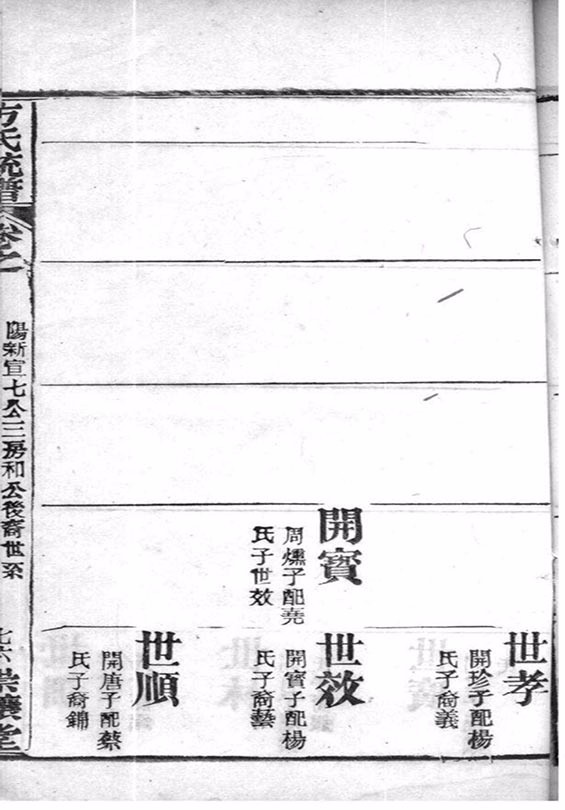 開寳
周爃子配堯
氏子世效
世孝
開珍子配楊
氏子裔義
世效
開寳子配楊
氏子裔藝
世順
開唐子配蔡
氏子裔鏽
方氏統譜
卷之
陽新宣七公三房和公後裔世系
七六
堂